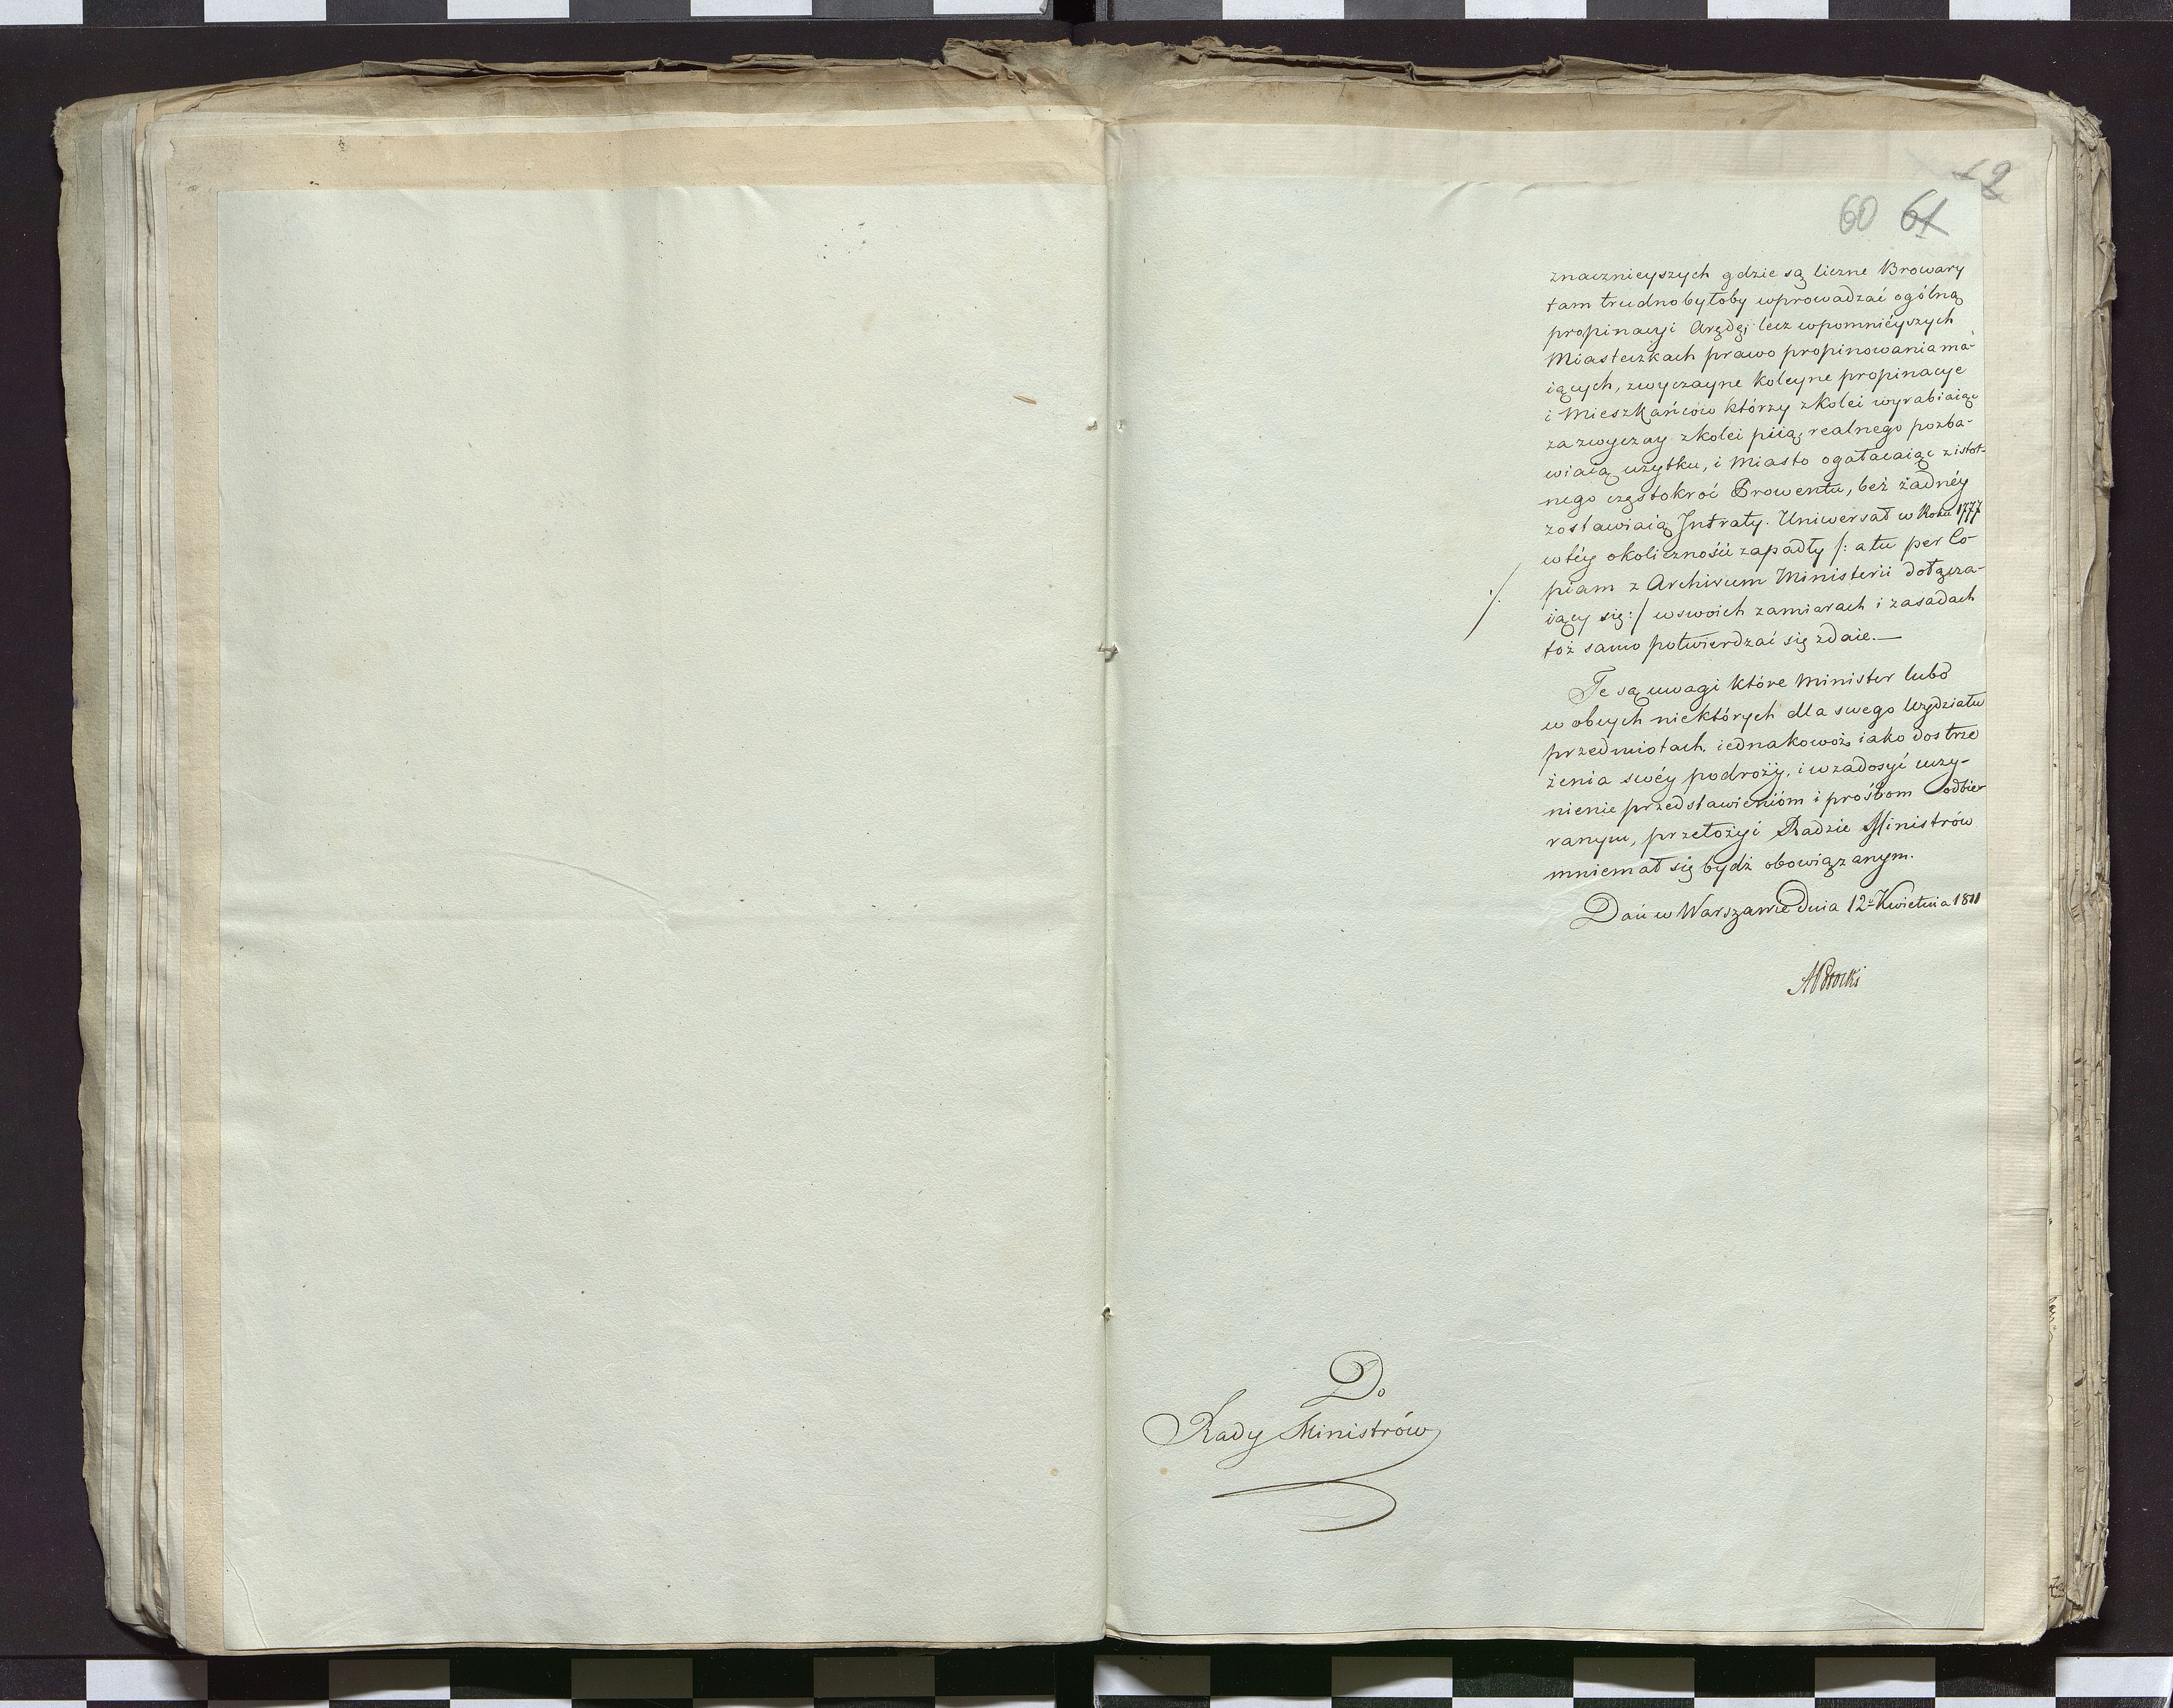 2
60 61
znacznieyszych gdzie są liczne Browary
tam trudno byłoby wprowadzać ogólną
propinacyi Arędę; lecz w pomnieyszych
Miasteczkach prawo propinowania ma-
iących, zwyczayne koleyne propinacye
i Mieszkańców którzy z kolei wyrabiaiąc
zazwyczay z kolei piią, realnego pozba-
wiaią użytku, i Miasto ogałacaiąc z istot-
nego częstokroć Prowentu, beż żadnéy
zostawiaią Jntraty. Uniwersał w Roku 1777
w téy okoliczności zapadły /: a tu per Co-
piam z Archivum Ministerii dołącza-
iący się :/ w swoich zamiarach i zasadach
toż samo potwierdzać się zdaie.—
Te są uwagi które Minister lubo
w obcych niektórych dla swego Wydziału
przedmiotach, iednakowoż iako dostrze
żenia swéy podroży, i w zadosyć uczy-
nienie przedstawienióm i prośbom odbie-
ranym, przełożyć Radzie Ministrów
mniemał się bydź obowiązanym.
Dań w Warszawie Dnia 12º Kwietnia 1811
A Potocki
Do
Rady Ministrów